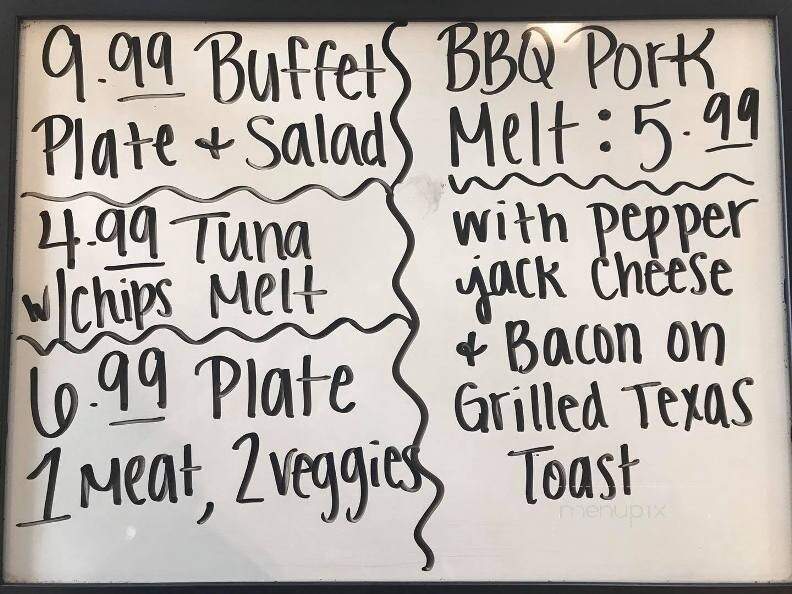 9.99 Buffet
Plate & Salad
4.99 Tuna
w/chips Melt
6.99 Plate
1 Meat, 2 veggies
BBQ Pork
Melt: 5.99
with pepper
jack cheese
& Bacon on
Grilled Texas
Toast
menupix